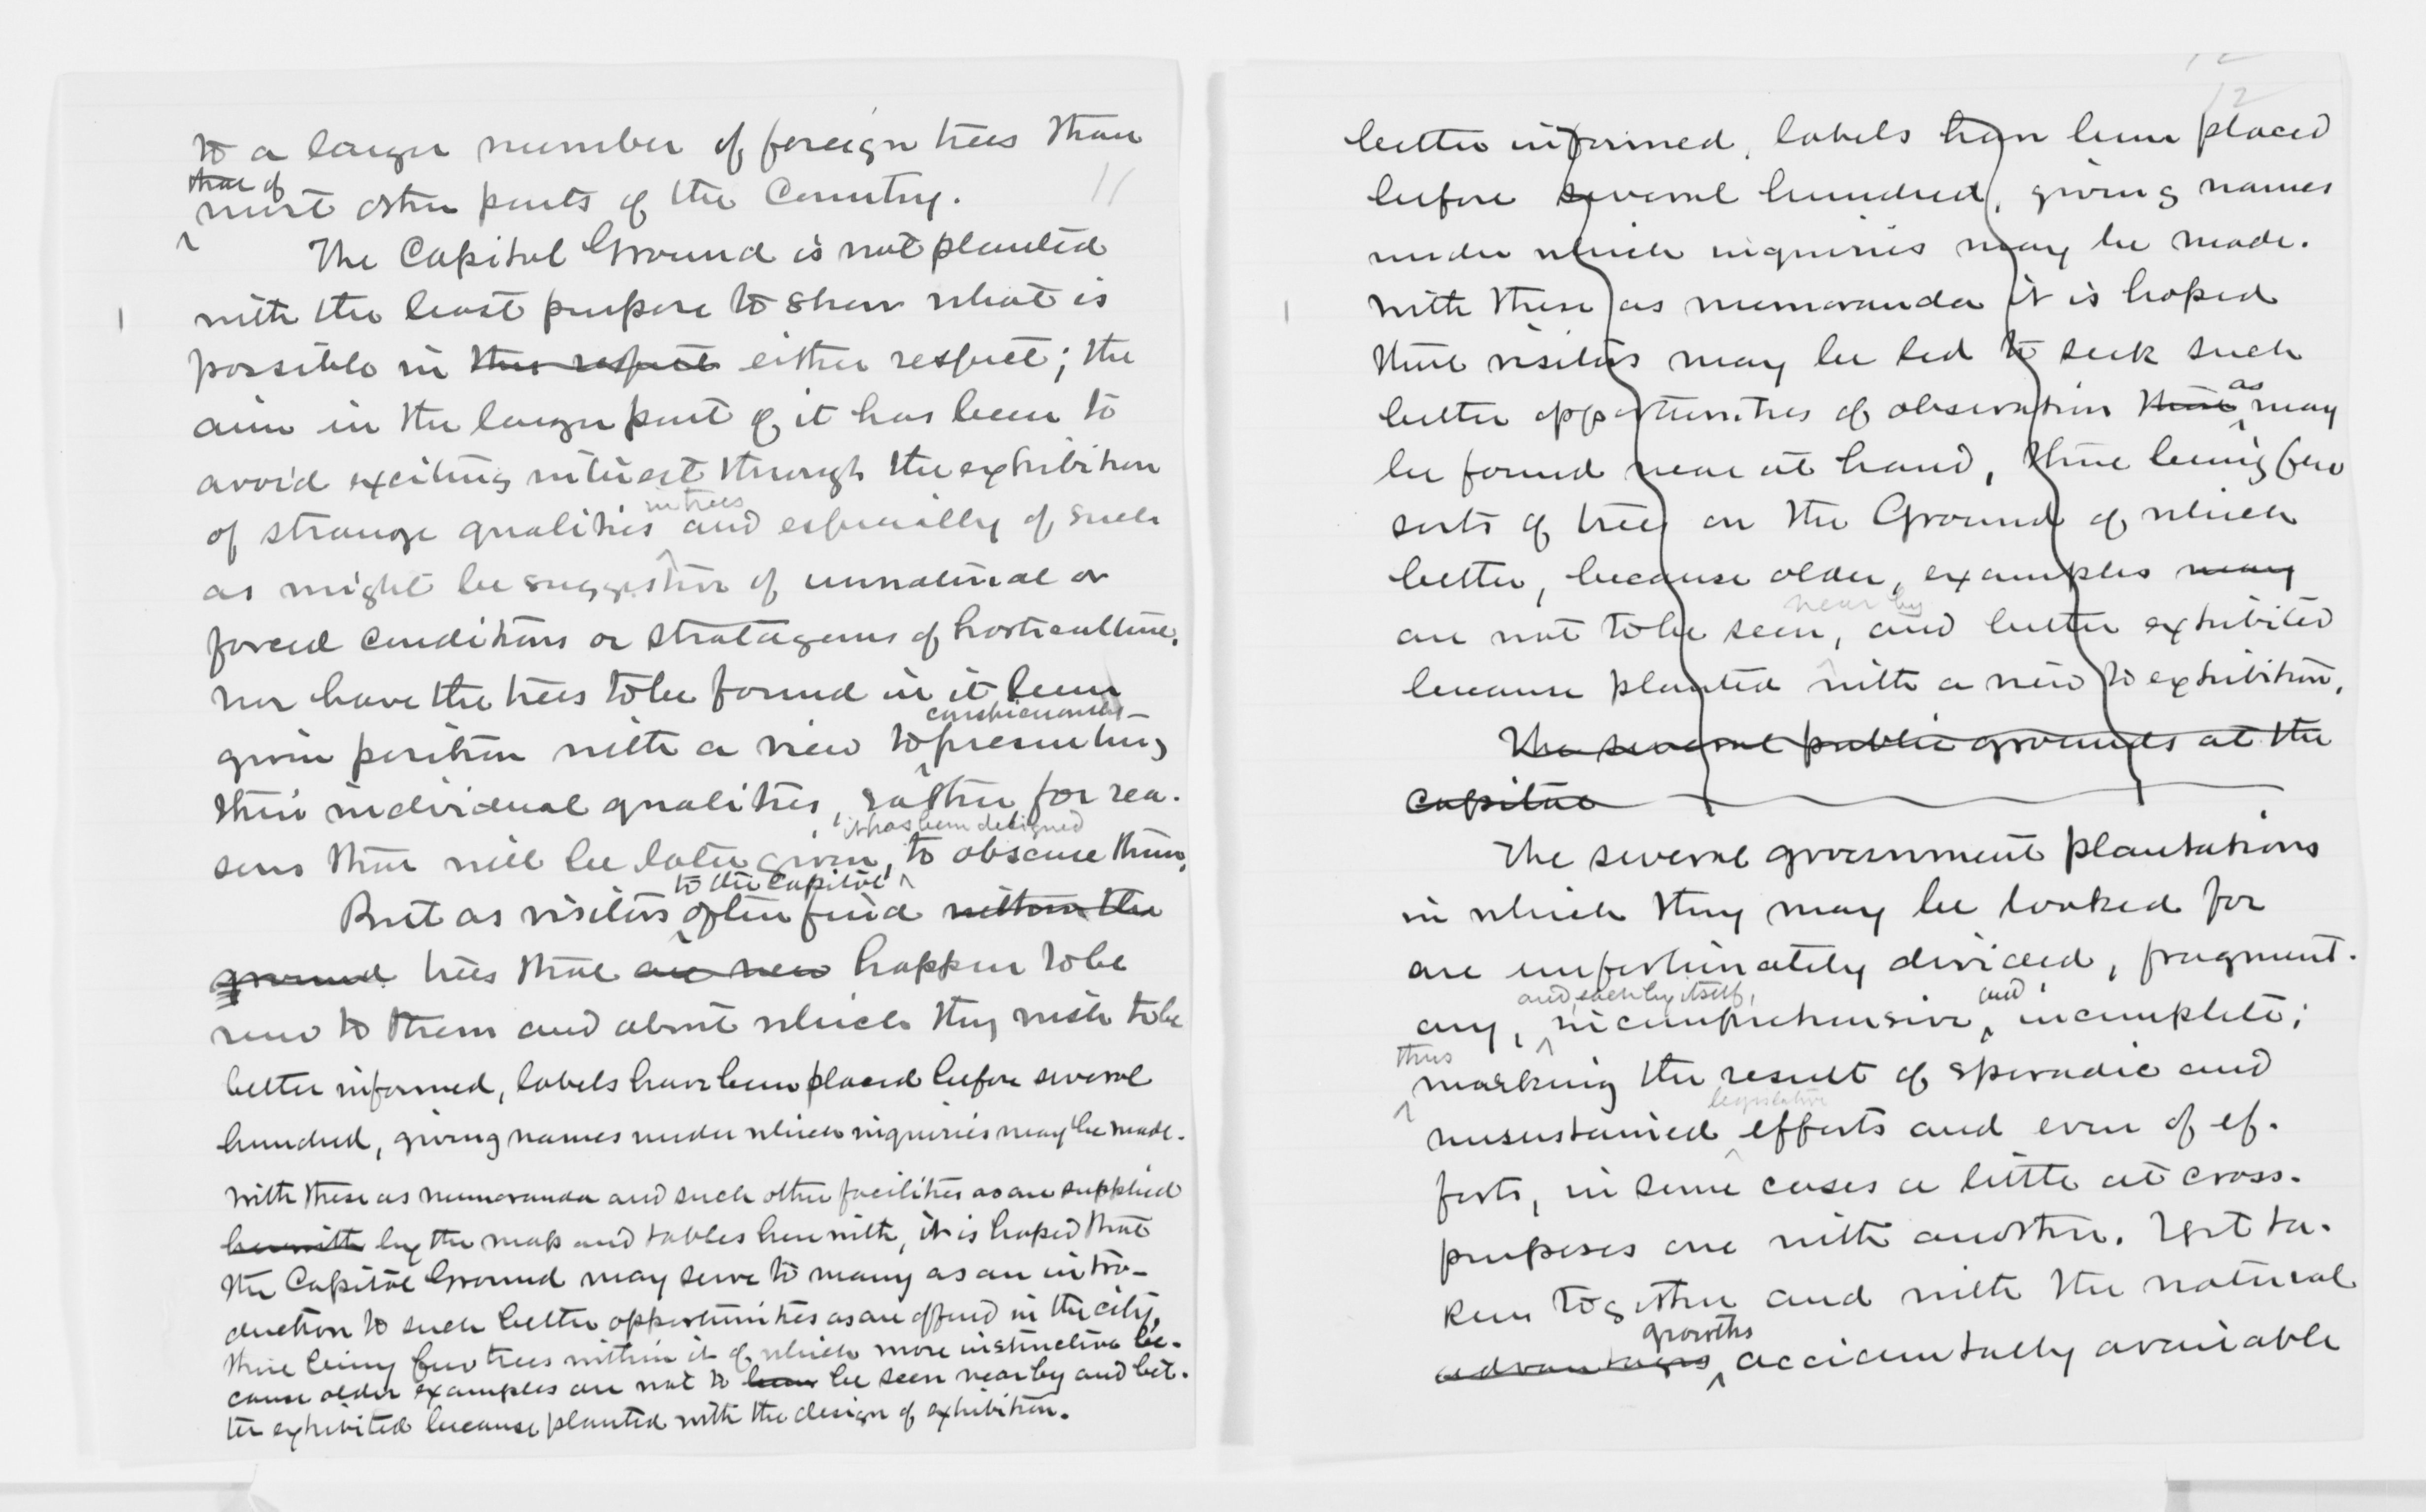 11
to a larger number of foreign trees than
that of
most other parts of the Country.
The Capitol Ground is not planted
with the least purpose to show what is
possible in this respect either respect; the
aim in the larger part of it has been to
avoid exciting interest through the exhibition
in trees
of strange qualities and especially of such
as might be suggestive of unnatural or
forced conditions or stratagems of horticulture.
Nor have the trees to be found in it been
conspicuously
given position with a view to presenting
their individual qualities, rather for rea-
it has been designed
sons that will be later given, to obscure them.
to the Capitol
But as visitors often find within the
ground trees that are new happen to be
new to them and about which they wish to be
better informed, labels have been placed before several
hundred, giving names under which inquiries may be made.
With these as memoranda and such other facilities as are supplied
herewith by the map and tables herewith, it is hoped that
the Capitol Ground may serve to many as an intro-
duction to such better opportunities as are offered in the city,
there being few trees within it of which more instructive be-
cause older examples are not to be seen near by and bet-
ter exhibited because planted with the design of exhibition.
12
better informed, labels have been placed
before several hundred, giving names
under which inquiries may be made.
With these as memoranda it is hoped
that visitors may be led to seek such
as
better opportunities of observation that may
be found near at hand, there being few
sorts of trees on the Ground of which
better, because older, examples many
near by
are not to be seen, and better exhibited
because planted with a view to exhibition.
The several public grounds at the
Capitol
The several government plantations
in which they may be looked for
are unfortunately divided, fragment-
and, each by itself, and
ary, incomprehensive, incomplete;
thus
marking the result of sporadic and
legislative
unsustained efforts and even of ef-
forts, in some cases a little at cross-
purposes one with another. Yet ta-
ken together and with the natural
growths
advantages accidentally available